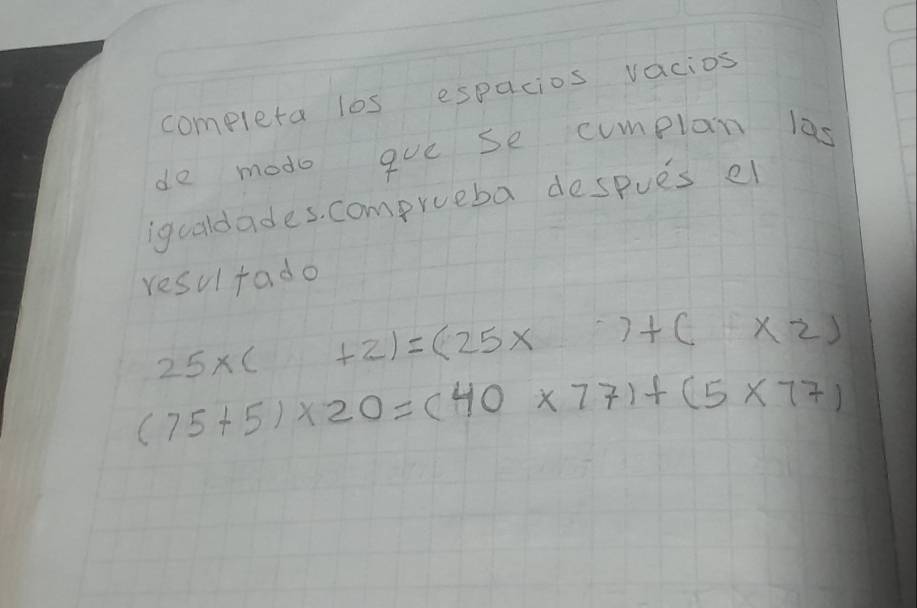 completa los espacios vacios
de modo que se cumplan las
igualdades.comprueba después el
resultado
25x( +2)=(25x )+( x2)
(75+5)x20=(40 x77)+(5x77)